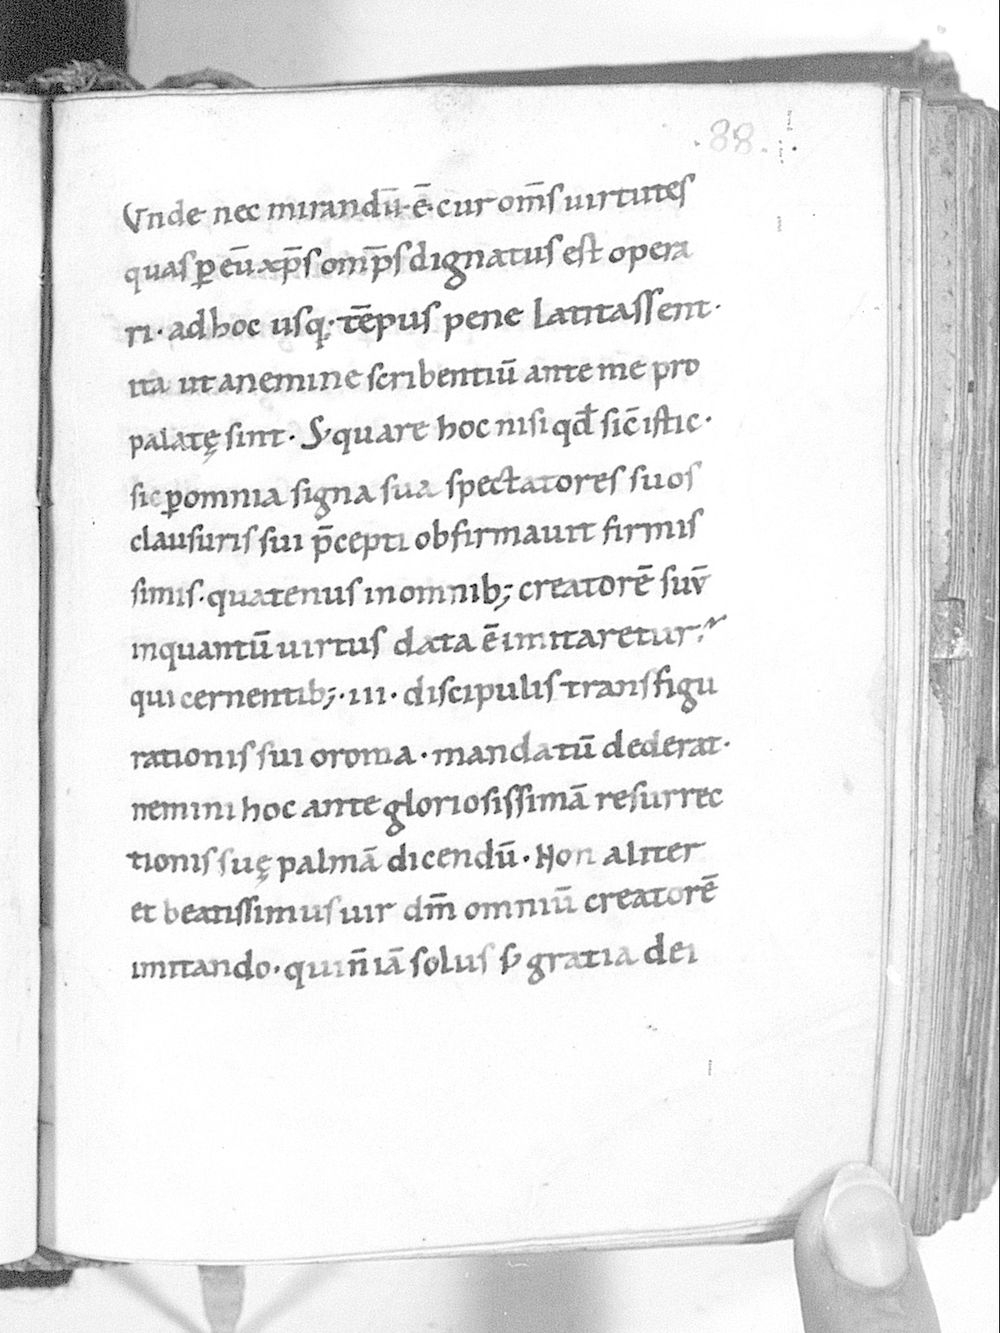 .88.
Vnde nec mirandū·ē·cur om̄s uirtutes
quas ꝑ eū xp̄s omp̄s dignatus est opera
ri· ad hoc usq;· tēpus pene latitassent·
ita ut a nemine scribentiū ante me pro
palatę sint· S; quare hoc nisi qđ sic̄ istic·
sic ꝑ omnia signa sua spectatores suos
clausuris sui p̄cepti obfirmauit firmis
simis· quatenus in omnib; creatorē suū
inquantū uirtus data ē imitaretur;
qui cernentib;·iii· discipulis transfigu
rationis sui oroma· mandatū dederat·
nemini hoc ante gloriosissimā resurrec
tionis suę palmā dicendū· Non aliter
et beatissimus uir dm̄ omniū creatorē
imitando· qui n̄ iā solus s; gratia dei